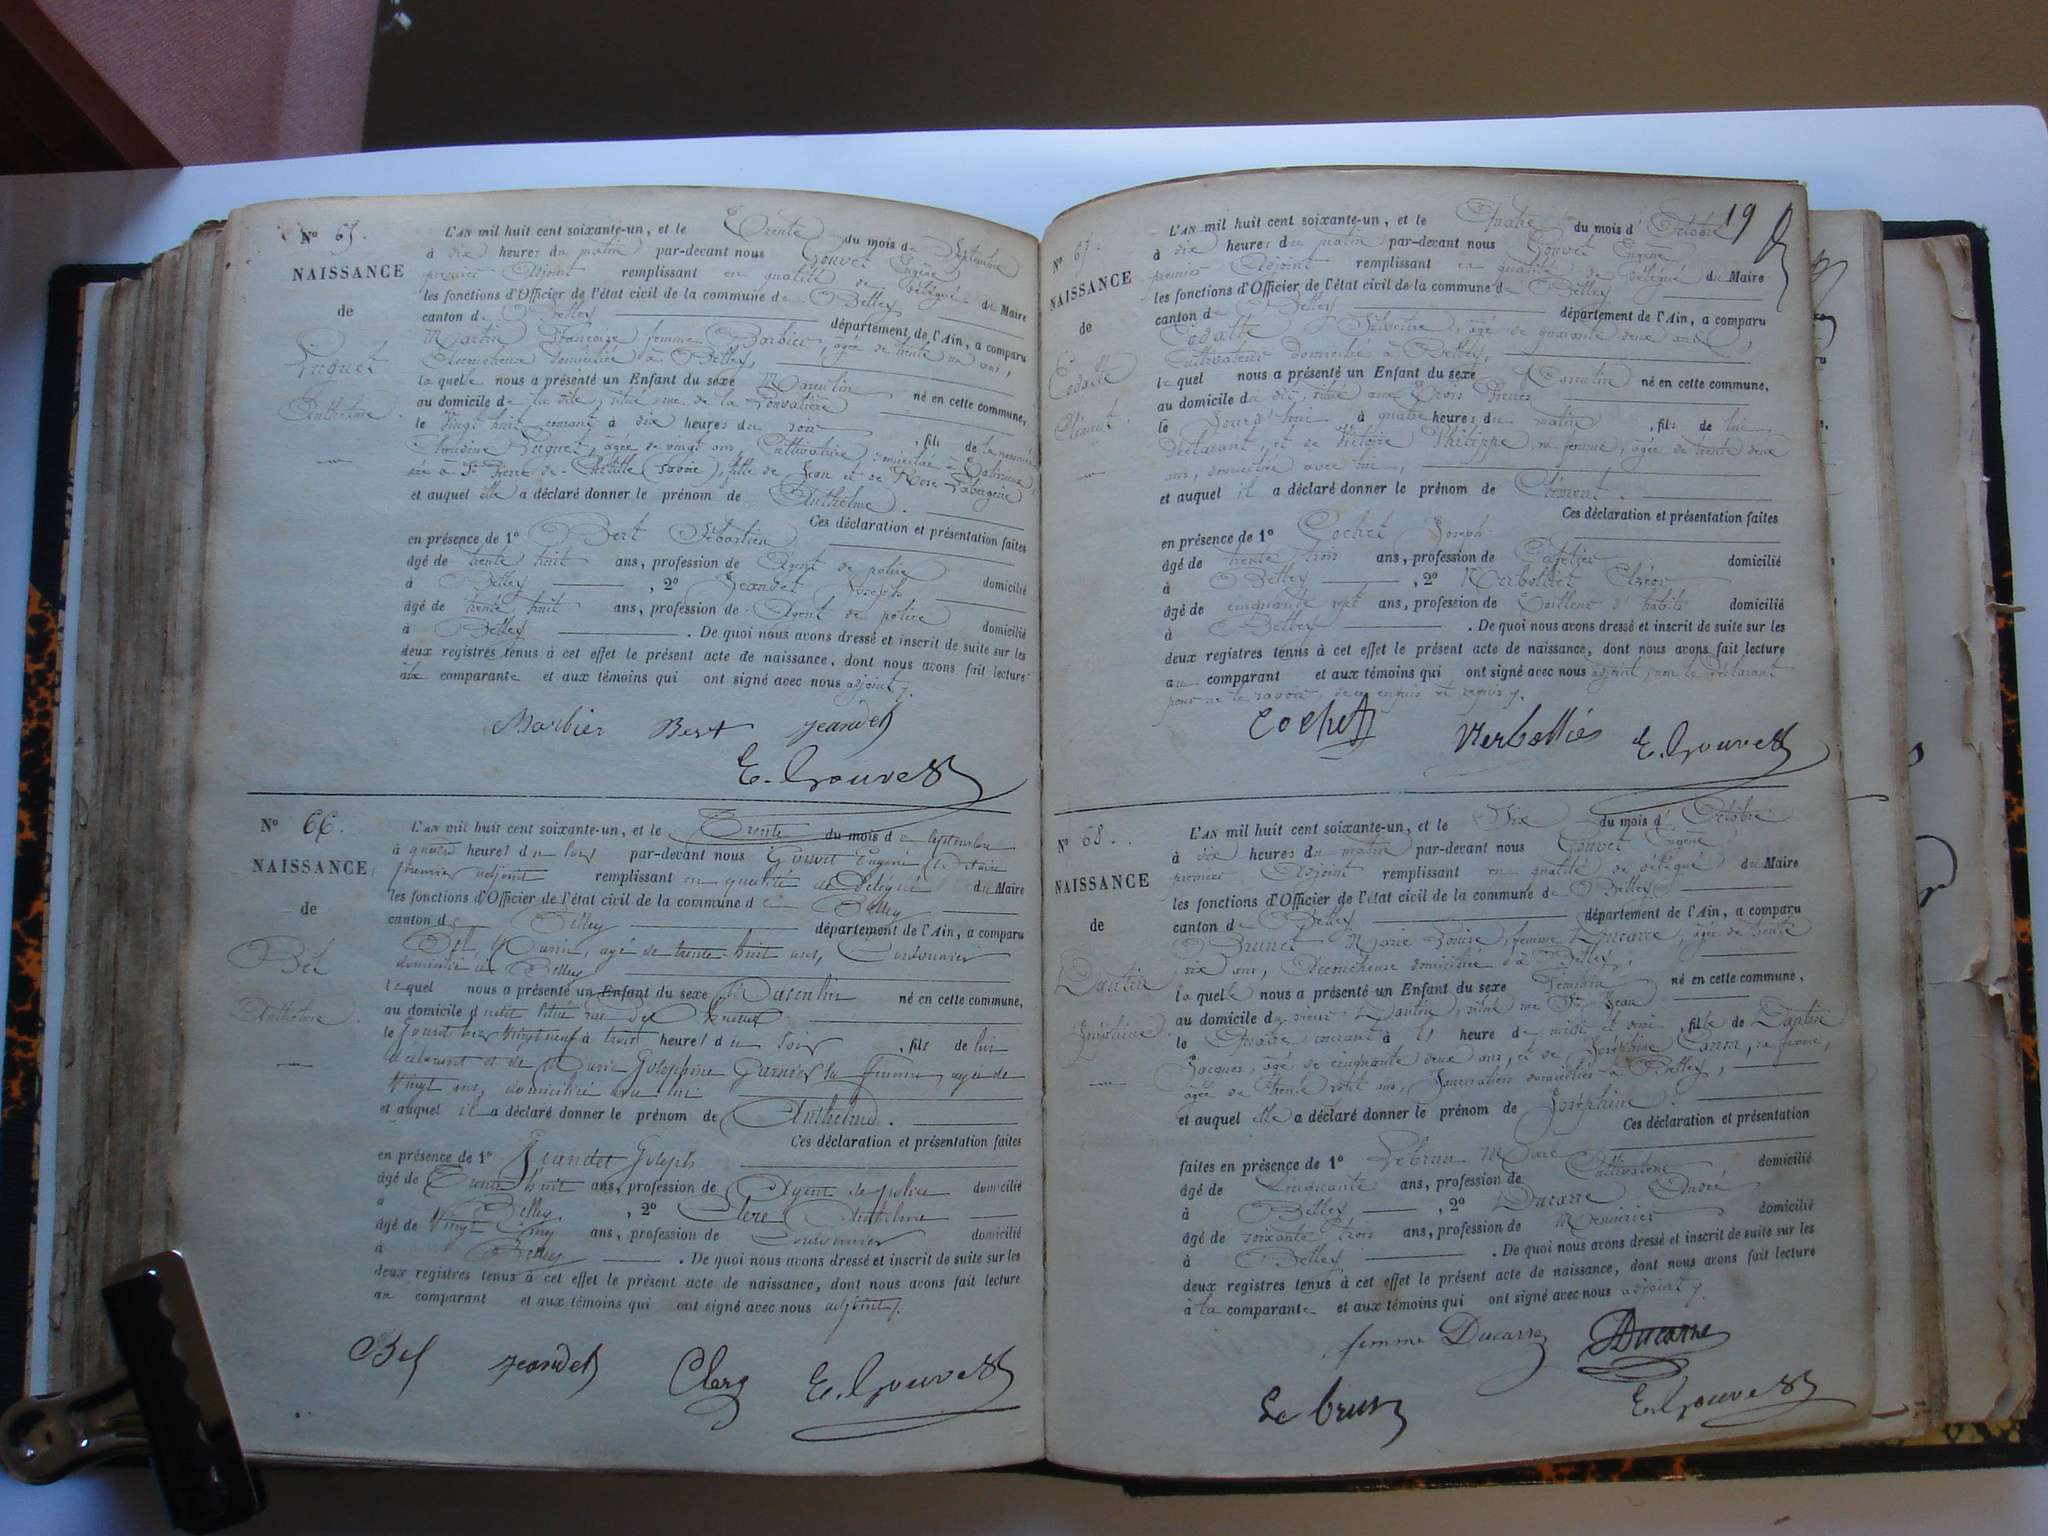 Nº 65.
NAISSANCE
de
Puguet
Anthelme.
L'AN mil huit cent soixante-un, et le Trente du mois de Septembre
à dix heures du matin par-devant nous Gouvet Eugène
premier Adjoint remplissant en qualité de délégué du Maire
les fonctions d'Officier de l'état civil de la commune de Belley
canton de Belley département de l'Ain, a comparu
Martin Françoise femme Barbier, âgée de trente un ans,
Accoucheuse domiciliée à Belley,
laquelle nous a présenté un Enfant du sexe Masculin né en cette commune,
au domicile de la dite, situé rue de la
le vingt huit courant à dix heures du soir, fils de la nommée
Claudine Puguet, âgée de vingt ans, Cultivatrice domiciliée à
née à St Pierre de (Savoie), fille de Jean et de Rose
et auquel elle a déclaré donner le prénom de Anthelme.
Ces déclaration et présentation faites
en présence de 1º Bert Sébastien
âgé de trente huit ans, profession de Agent de police domicilié
à Belley, 2º Jeandet Joseph
âgé de trente huit ans, profession de Agent de police domicilié
à Belley. De quoi nous avons dressé et inscrit de suite sur les
deux registres tenus à cet effet le présent acte de naissance, dont nous avons fait lecture
à la comparante et aux témoins qui ont signé avec nous adjoint.
Marbier Bert Jeandet
E. Gouvet
Nº 66.
NAISSANCE
de
Bel
Anthelme.
L'AN mil huit cent soixante-un, et le Trente du mois de Septembre
à quatre heures du soir par-devant nous Gouvet Eugène
premier adjoint remplissant en qualité de Délégué du Maire
les fonctions d'Officier de l'état civil de la commune de Belley
canton de Belley département de l'Ain, a comparu
Bel Marin, agé de trente-huit ans, Cordonnier
domicilié à Belley
lequel nous a présenté un Enfant du sexe Masculin né en cette commune,
au domicile situé rue
le jour d'hier vingt neuf à trois heures du soir, fils de lui
déclarant et de Marie Josephine Garnier sa femme, agée de
vingt ans, domiciliée avec lui
et auquel il a déclaré donner le prénom de Anthelme.
Ces déclaration et présentation faites
en présence de 1º Jeandet Joseph
âgé de Trente huit ans, profession de Agent de police domicilié
à Belley, 2º Clerc Anthelme
âgé de Vingt Cinq ans, profession de Cordonnier domicilié
à Belley. De quoi nous avons dressé et inscrit de suite sur les
deux registres tenus à cet effet le présent acte de naissance, dont nous avons fait lecture
au comparant et aux témoins qui ont signé avec nous adjoint.
Bel Jeandet Clerc E. Gouvet
19
Nº 67.
NAISSANCE
de
Codalle
Clément.
L'AN mil huit cent soixante-un, et le Quatre du mois d'Octobre
à dix heures du matin par-devant nous Gouvet Eugène
premier Adjoint remplissant en qualité de délégué du Maire
les fonctions d'Officier de l'état civil de la commune de Belley
canton de Belley département de l'Ain, a comparu
Codalle Silvestre, âgé de quarante deux ans,
Cultivateur domicilié à Belley,
lequel nous a présenté un Enfant du sexe Masculin né en cette commune,
au domicile du dit, situé aux Trois
le jour d'hui à quatre heures du matin, fils de lui
déclarant, et de Victoire Philippe, sa femme, âgée de trente deux
ans, domiciliée avec lui,
et auquel il a déclaré donner le prénom de Clément.
Ces déclaration et présentation faites
en présence de 1º Cochet Joseph
âgé de trente trois ans, profession de domicilié
à Belley, 2º
âgé de cinquante sept ans, profession de Tailleur d'habits domicilié
à Belley. De quoi nous avons dressé et inscrit de suite sur les
deux registres tenus à cet effet le présent acte de naissance, dont nous avons fait lecture
au comparant et aux témoins qui ont signé avec nous adjoint, non le déclarant
pour ne le savoir, de ce enquis et requis.
Cochet E. Gouvet
Nº 68.
NAISSANCE
de
Dantin
Joséphine.
L'AN mil huit cent soixante-un, et le Six du mois d'Octobre
à dix heures du matin par-devant nous Gouvet Eugène
premier Adjoint remplissant en qualité de délégué du Maire
les fonctions d'Officier de l'état civil de la commune de Belley
canton de Belley département de l'Ain, a comparu
Brunet Marie Louise, femme Ducarre, âgée de trente
six ans, Accoucheuse domiciliée à Belley,
laquelle nous a présenté un Enfant du sexe Féminin né en cette commune,
au domicile du sieur Dantin, situé rue St Jean
le Quatre courant à heure de midi et demi, fille de Dantin
Jacques, âgé de cinquante deux ans, et de Joséphine sa femme,
âgée de trente sept ans, Journaliers domiciliés à Belley,
et auquel elle a déclaré donner le prénom de Joséphine.
Ces déclaration et présentation
faites en présence de 1º Lebrun Marc
âgé de Cinquante ans, profession de Cultivateur domicilié
à Belley, 2º Ducarre André
âgé de soixante trois ans, profession de Menuisier domicilié
à Belley. De quoi nous avons dressé et inscrit de suite sur les
deux registres tenus à cet effet le présent acte de naissance, dont nous avons fait lecture
à la comparante et aux témoins qui ont signé avec nous adjoint.
femme Ducarre Ducarre
Le brun E. Gouvet